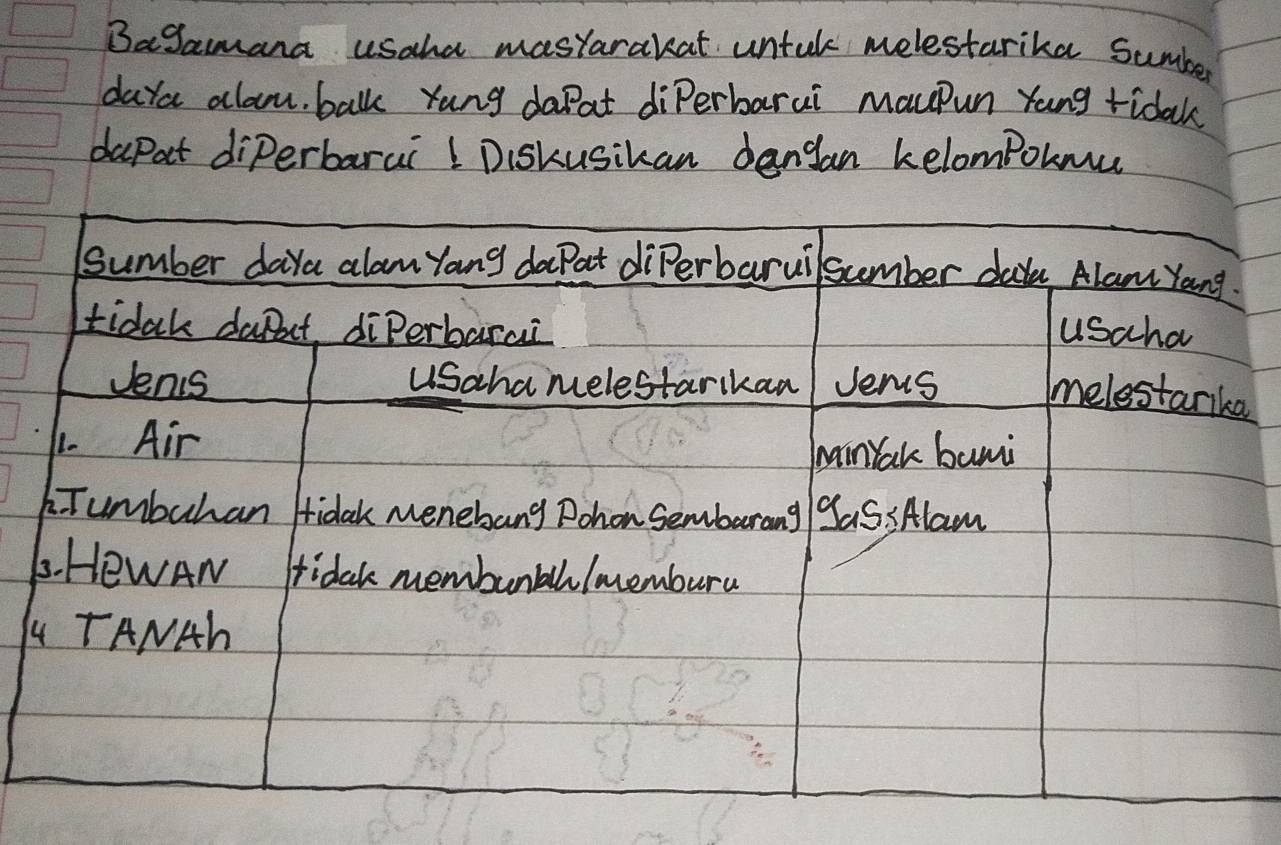 Bagamana usaha masyarakat untuk melestarika Sumber
daya alam. baik yung dapat diperbarui maupun yang tidak
dapat diperbarui ! Diskusikan dengan kelompokmu
Sumber daya alam yang dapat diperbarui Sumber daya Alam yang.
tidak dapat diperbarui usaha
Jenis usaha melestarikan Jenis melestarika
1. Air Minyak bumi
2. Tumbuhan tidak menebang Pohon sembarang gas Alam
3. HEWAN tidak membunuh/memburu
4 TANAh